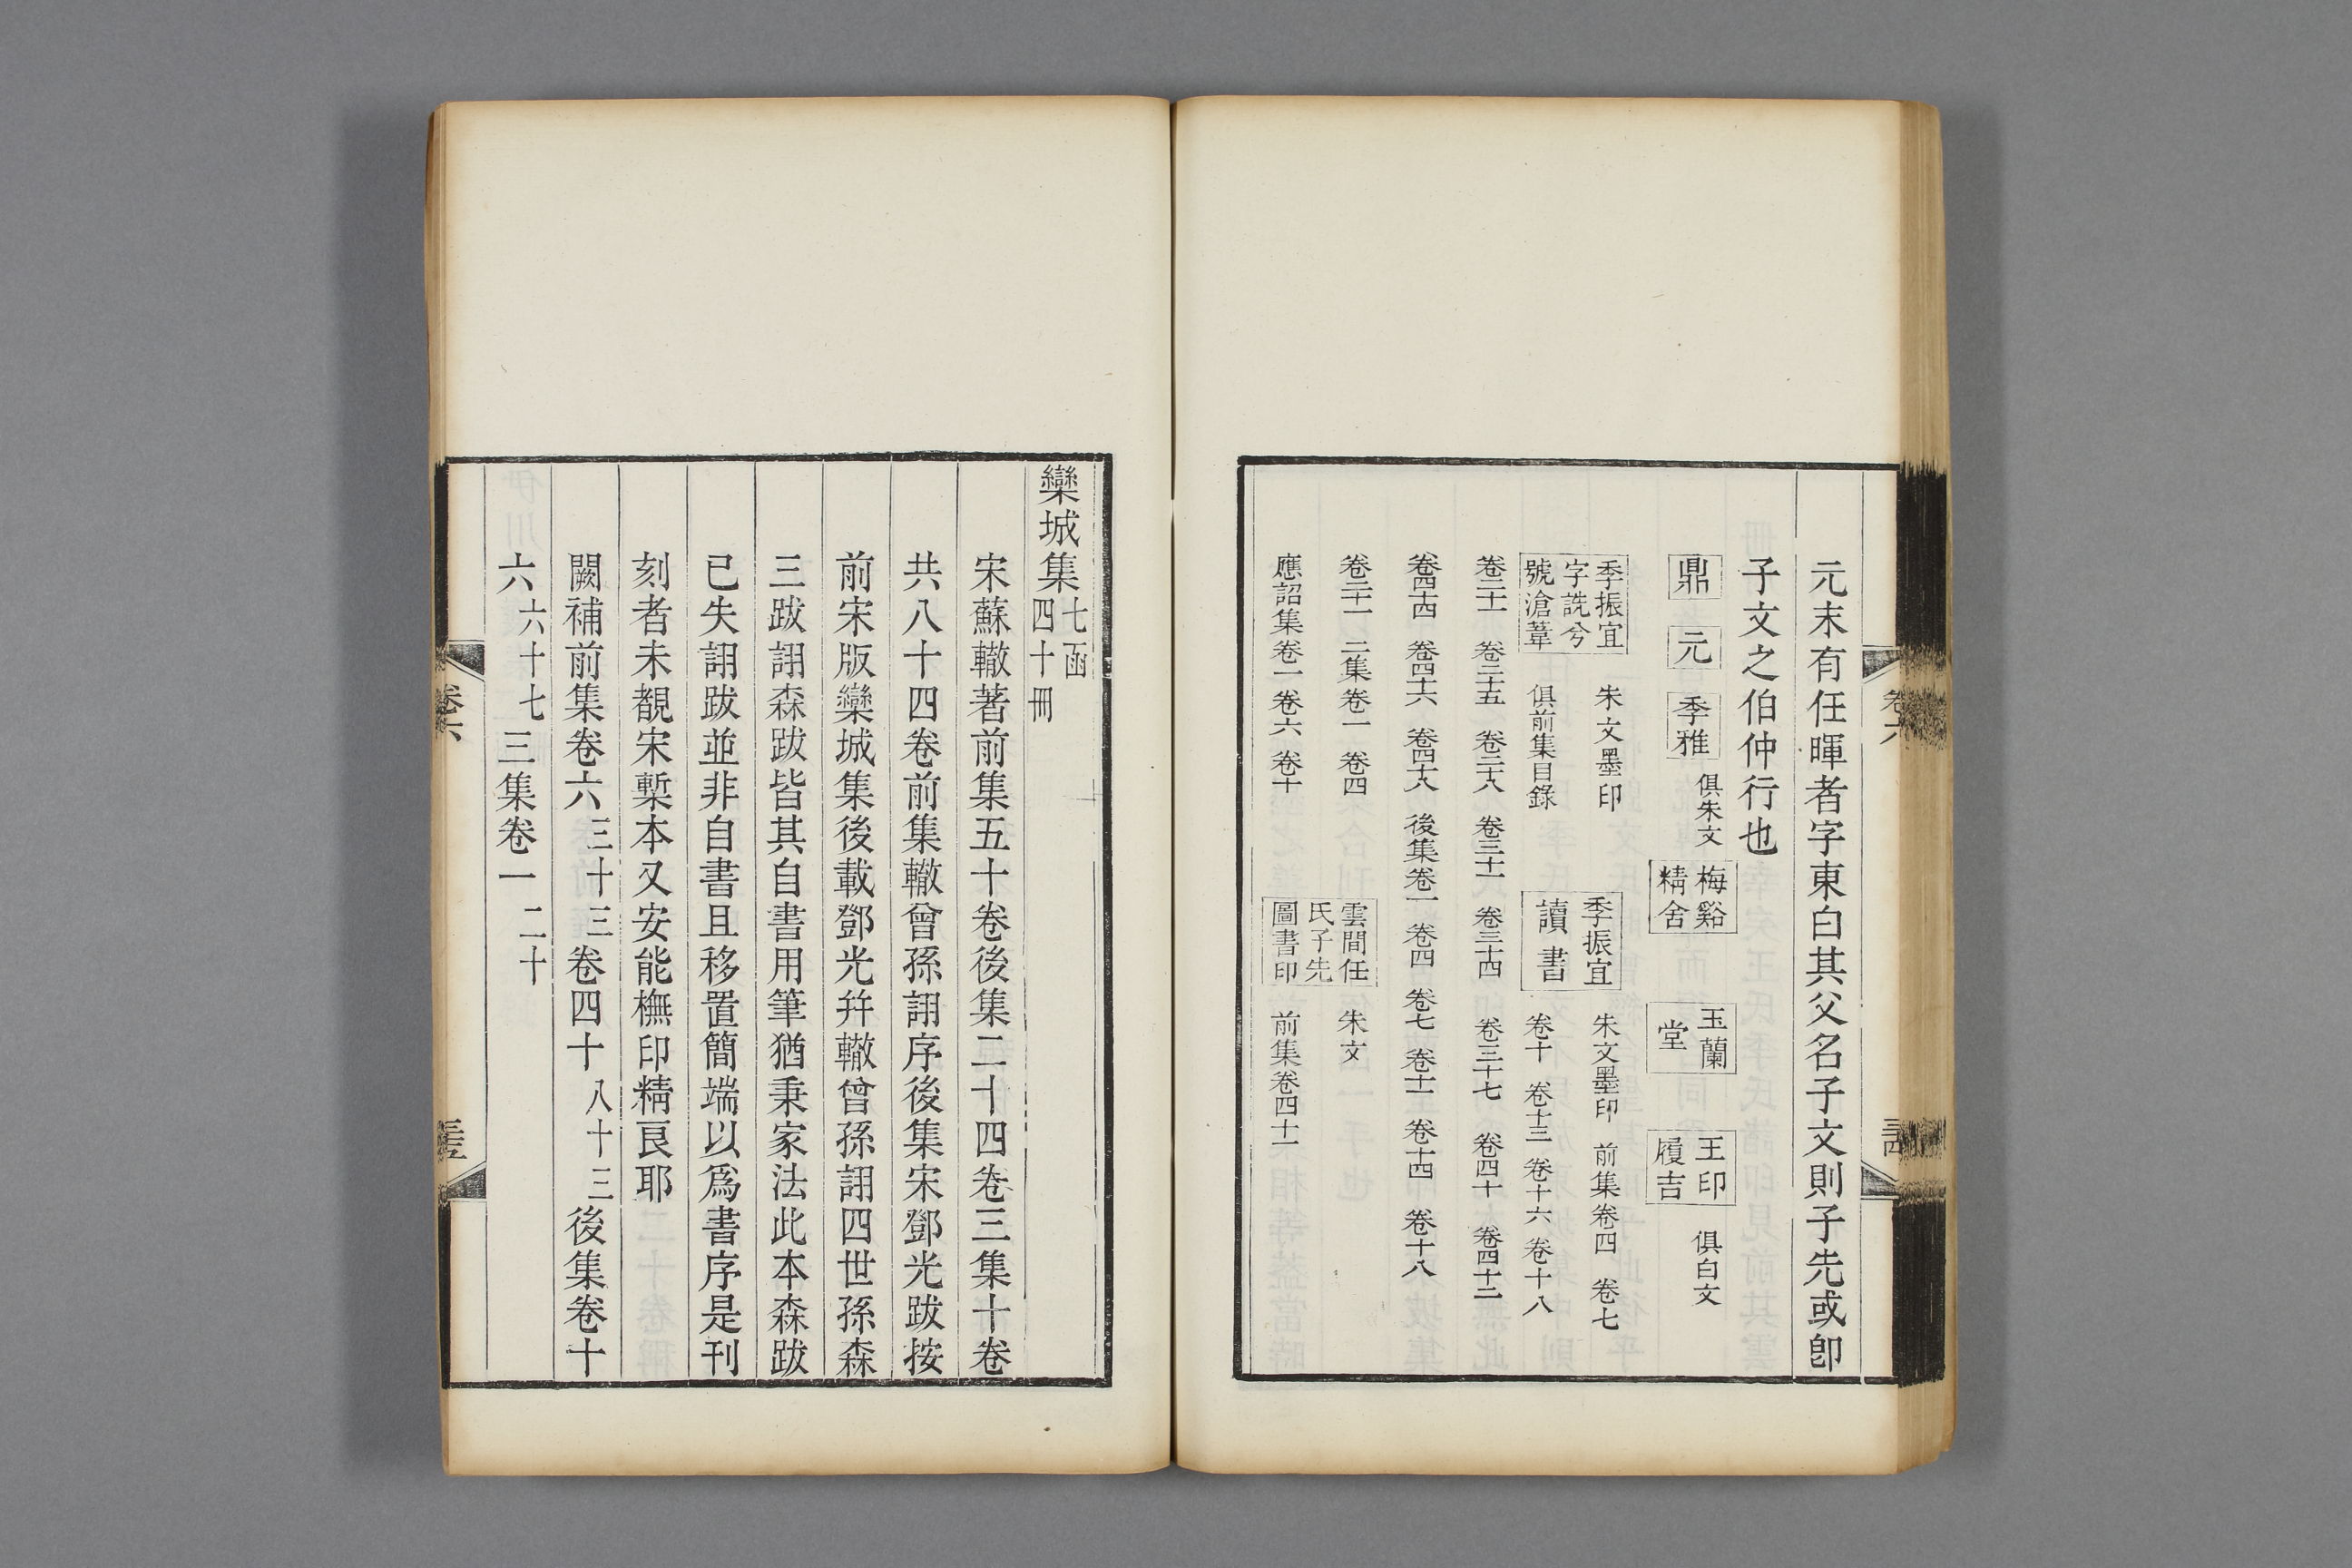 元末有任暉者字東白其父名子文則子先或卽
子文之伯仲行也
鼎 元 季雅 俱朱文 梅谿精舍 玉蘭堂 王印履吉 俱白文
季振宜字詵兮號滄葦 朱文墨印 俱前集目錄 季振宜讀書 朱文墨印 前集卷四 卷七
卷十 卷十三 卷十六 卷十八
卷二十一 卷二十五 卷二十八 卷三十一 卷三十四 卷三十七 卷四十 卷四十二
卷四十四 卷四十六 卷四十八 後集卷一 卷四 卷七 卷十一 卷十四 卷十八
卷二十一 三集卷一 卷四
應詔集卷一 卷六 卷十 雲間任氏子先圖書印 朱文 前集卷四十一
卷六
三十四
欒城集 七函四十冊
宋蘇轍著前集五十卷後集二十四卷三集十卷
共八十四卷前集轍曾孫詡序後集宋鄧光跋按
前宋版欒城集後載鄧光幷轍曾孫詡四世孫森
三跋詡森跋皆其自書用筆猶秉家法此本森跋
已失詡跋並非自書且移置簡端以爲書序是刊
刻者未覩宋槧本又安能橅印精良耶
闕補前集卷六 三十三 卷四十 八十三 後集卷十
六 六十七 三集卷一 二十
卷六
三十五